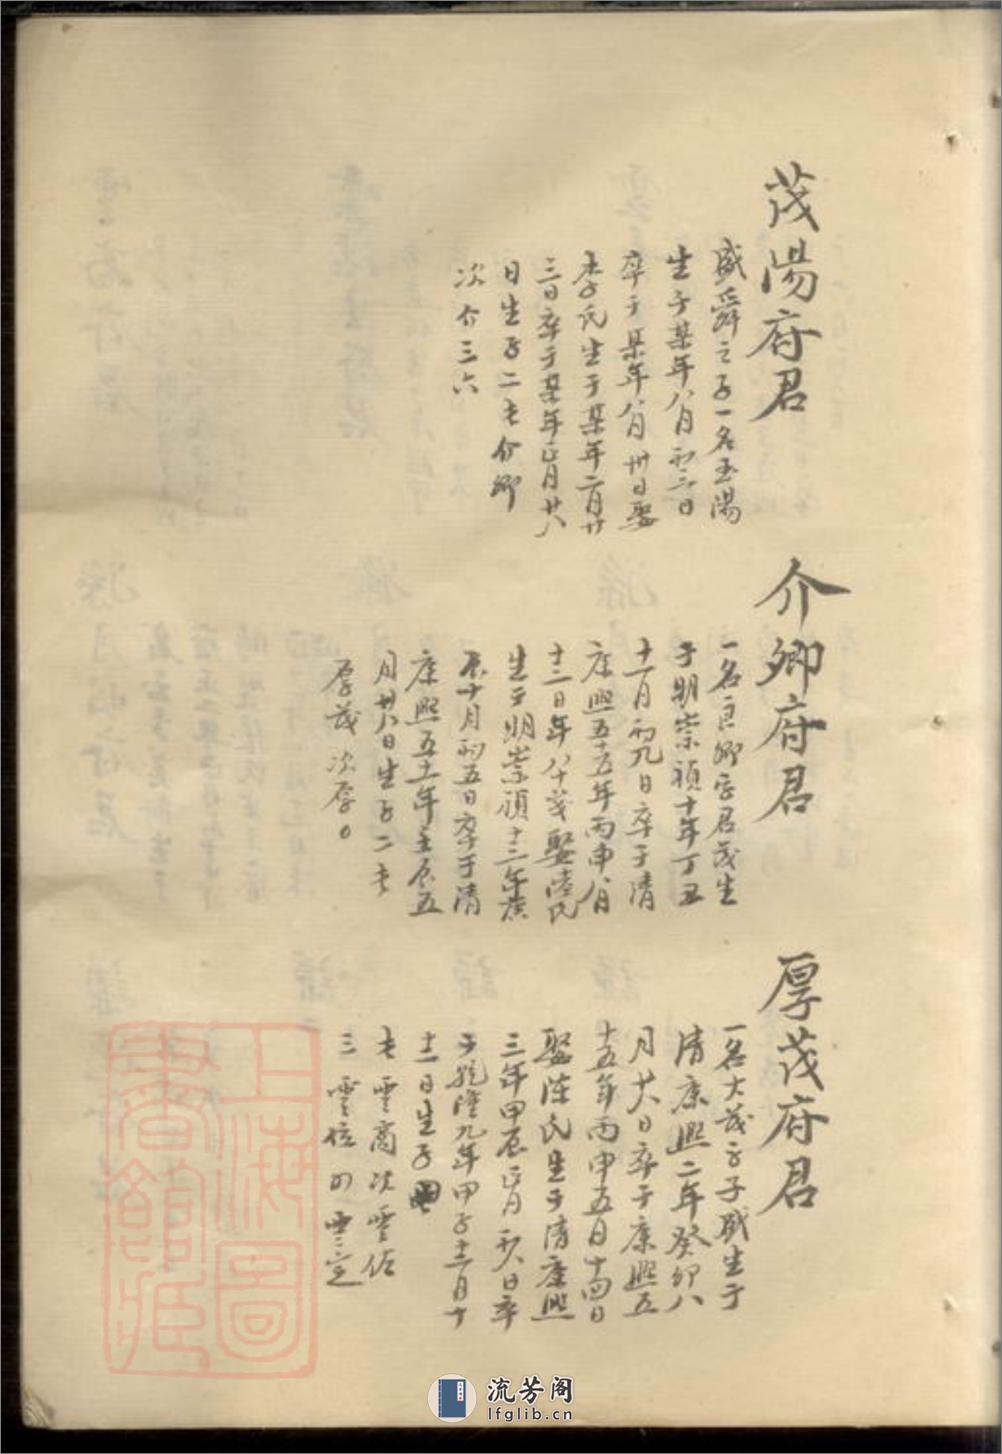 茂陽府君
盛舜之子一名玉陽
生于某年八月初三日
卒于某年八月卅日娶
李氏生于某年二月廿
三日卒于某年正月廿八
日生子二長介卿
次介三六
介卿府君
一名良卿字君茂生
于明崇禎十年丁丑
十一月初九日卒于清
康熙五十五年丙申八月
十三日年八十歲娶陸氏
生于明崇禎十三年庚
辰十月初五日卒于清
康熙五十一年壬辰五
月廿八日生子二長
厚茂 次厚
厚茂府君
一名大茂字子盛生于
清康熙二年癸卯八
月廿八日卒于康熙五
十五年丙申五月十四日
娶陳氏生于清康熙
三年甲辰正月初八日卒
于乾隆九年甲子十二月十
二日生子四
長雲高次雲佐
三雲位四雲定
上海圖書館藏
流芳阁
lfglib.cn